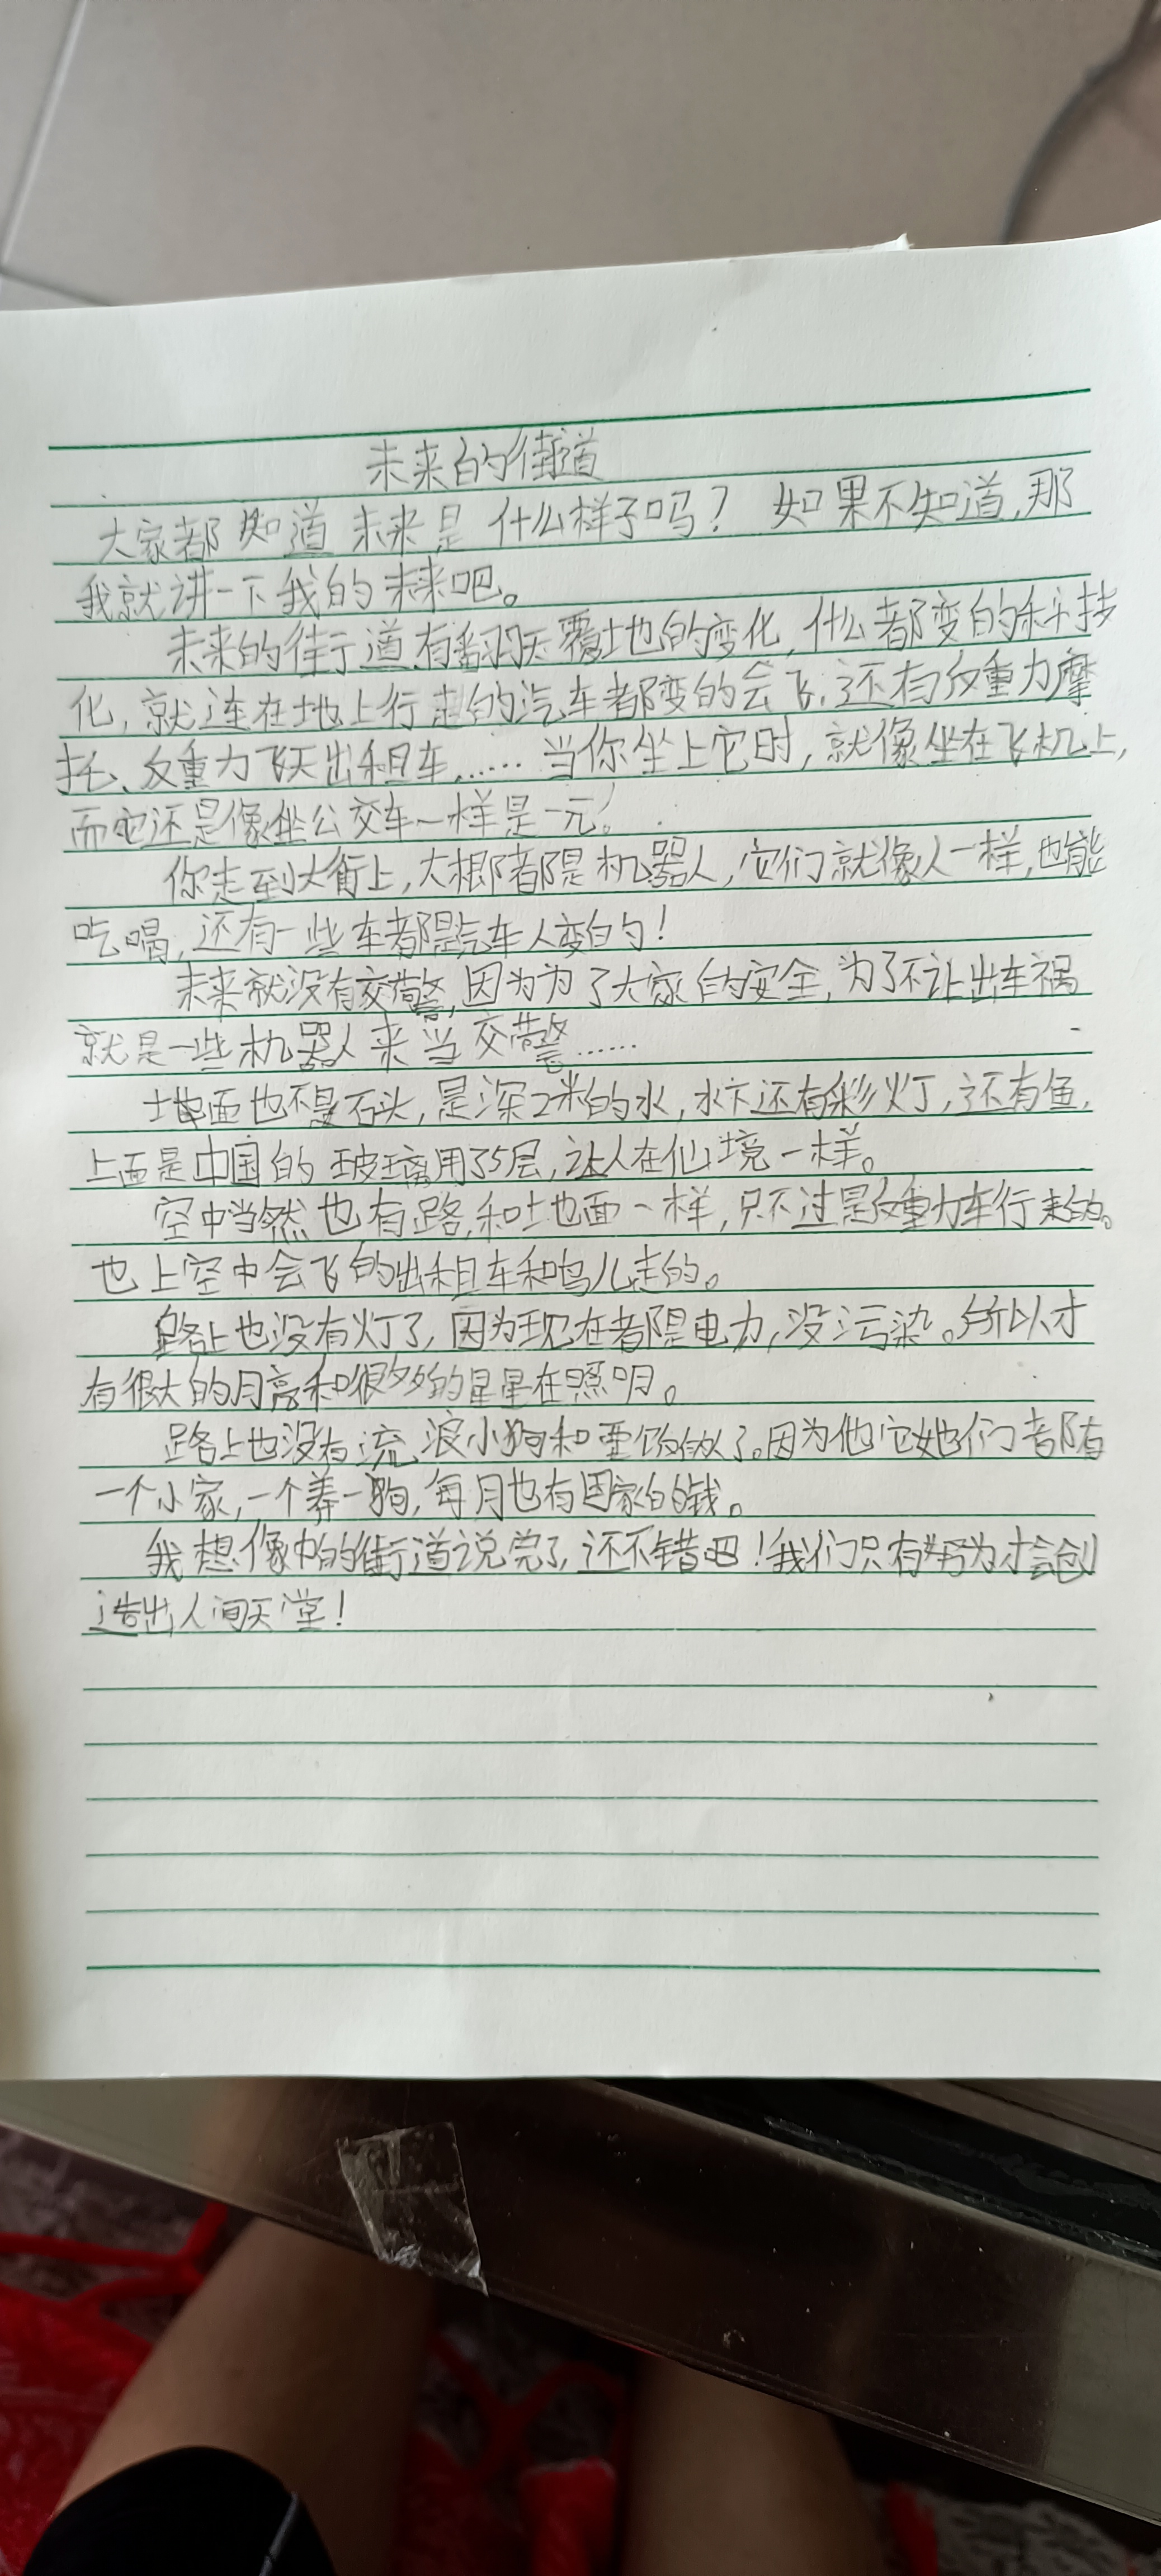 未来的街道
大家都知道未来是什么样子吗？如果不知道,那
我就讲一下我的未来吧。
未来的街道有翻天覆地的变化,什么都变的科技
化,就连在地上行走的汽车都变的会飞,还有反重力摩
托、反重力飞天出租车……当你坐上它时,就像坐在飞机上,
而它还是像坐公交车一样是一元!
你走到大街上,大概都是机器人,它们就像人一样,也能
吃喝,还有一些车都是汽车人变的!
未来就没有交警,因为为了大家的安全,为了不让出车祸
就是一些机器人来当交警……
地面也不是石头,是深2米的水,水下还有彩灯,还有鱼,
上面是中国的玻璃用了5层,让人在仙境一样。
空中当然也有路,和地面一样,只不过是反重力车行走的。
也上空中会飞的出租车和鸟儿走的。
路上也没有灯了,因为现在都是电力,没污染。所以才
有很大的月亮和很多的星星在照明。
路上也没有流浪小狗和要饭的了。因为他它她们都有
一个小家,一个养一狗,每月也有国家的钱。
我想像中的街道说完了,还不错吧!我们只有努为才会创
造出人间天堂!